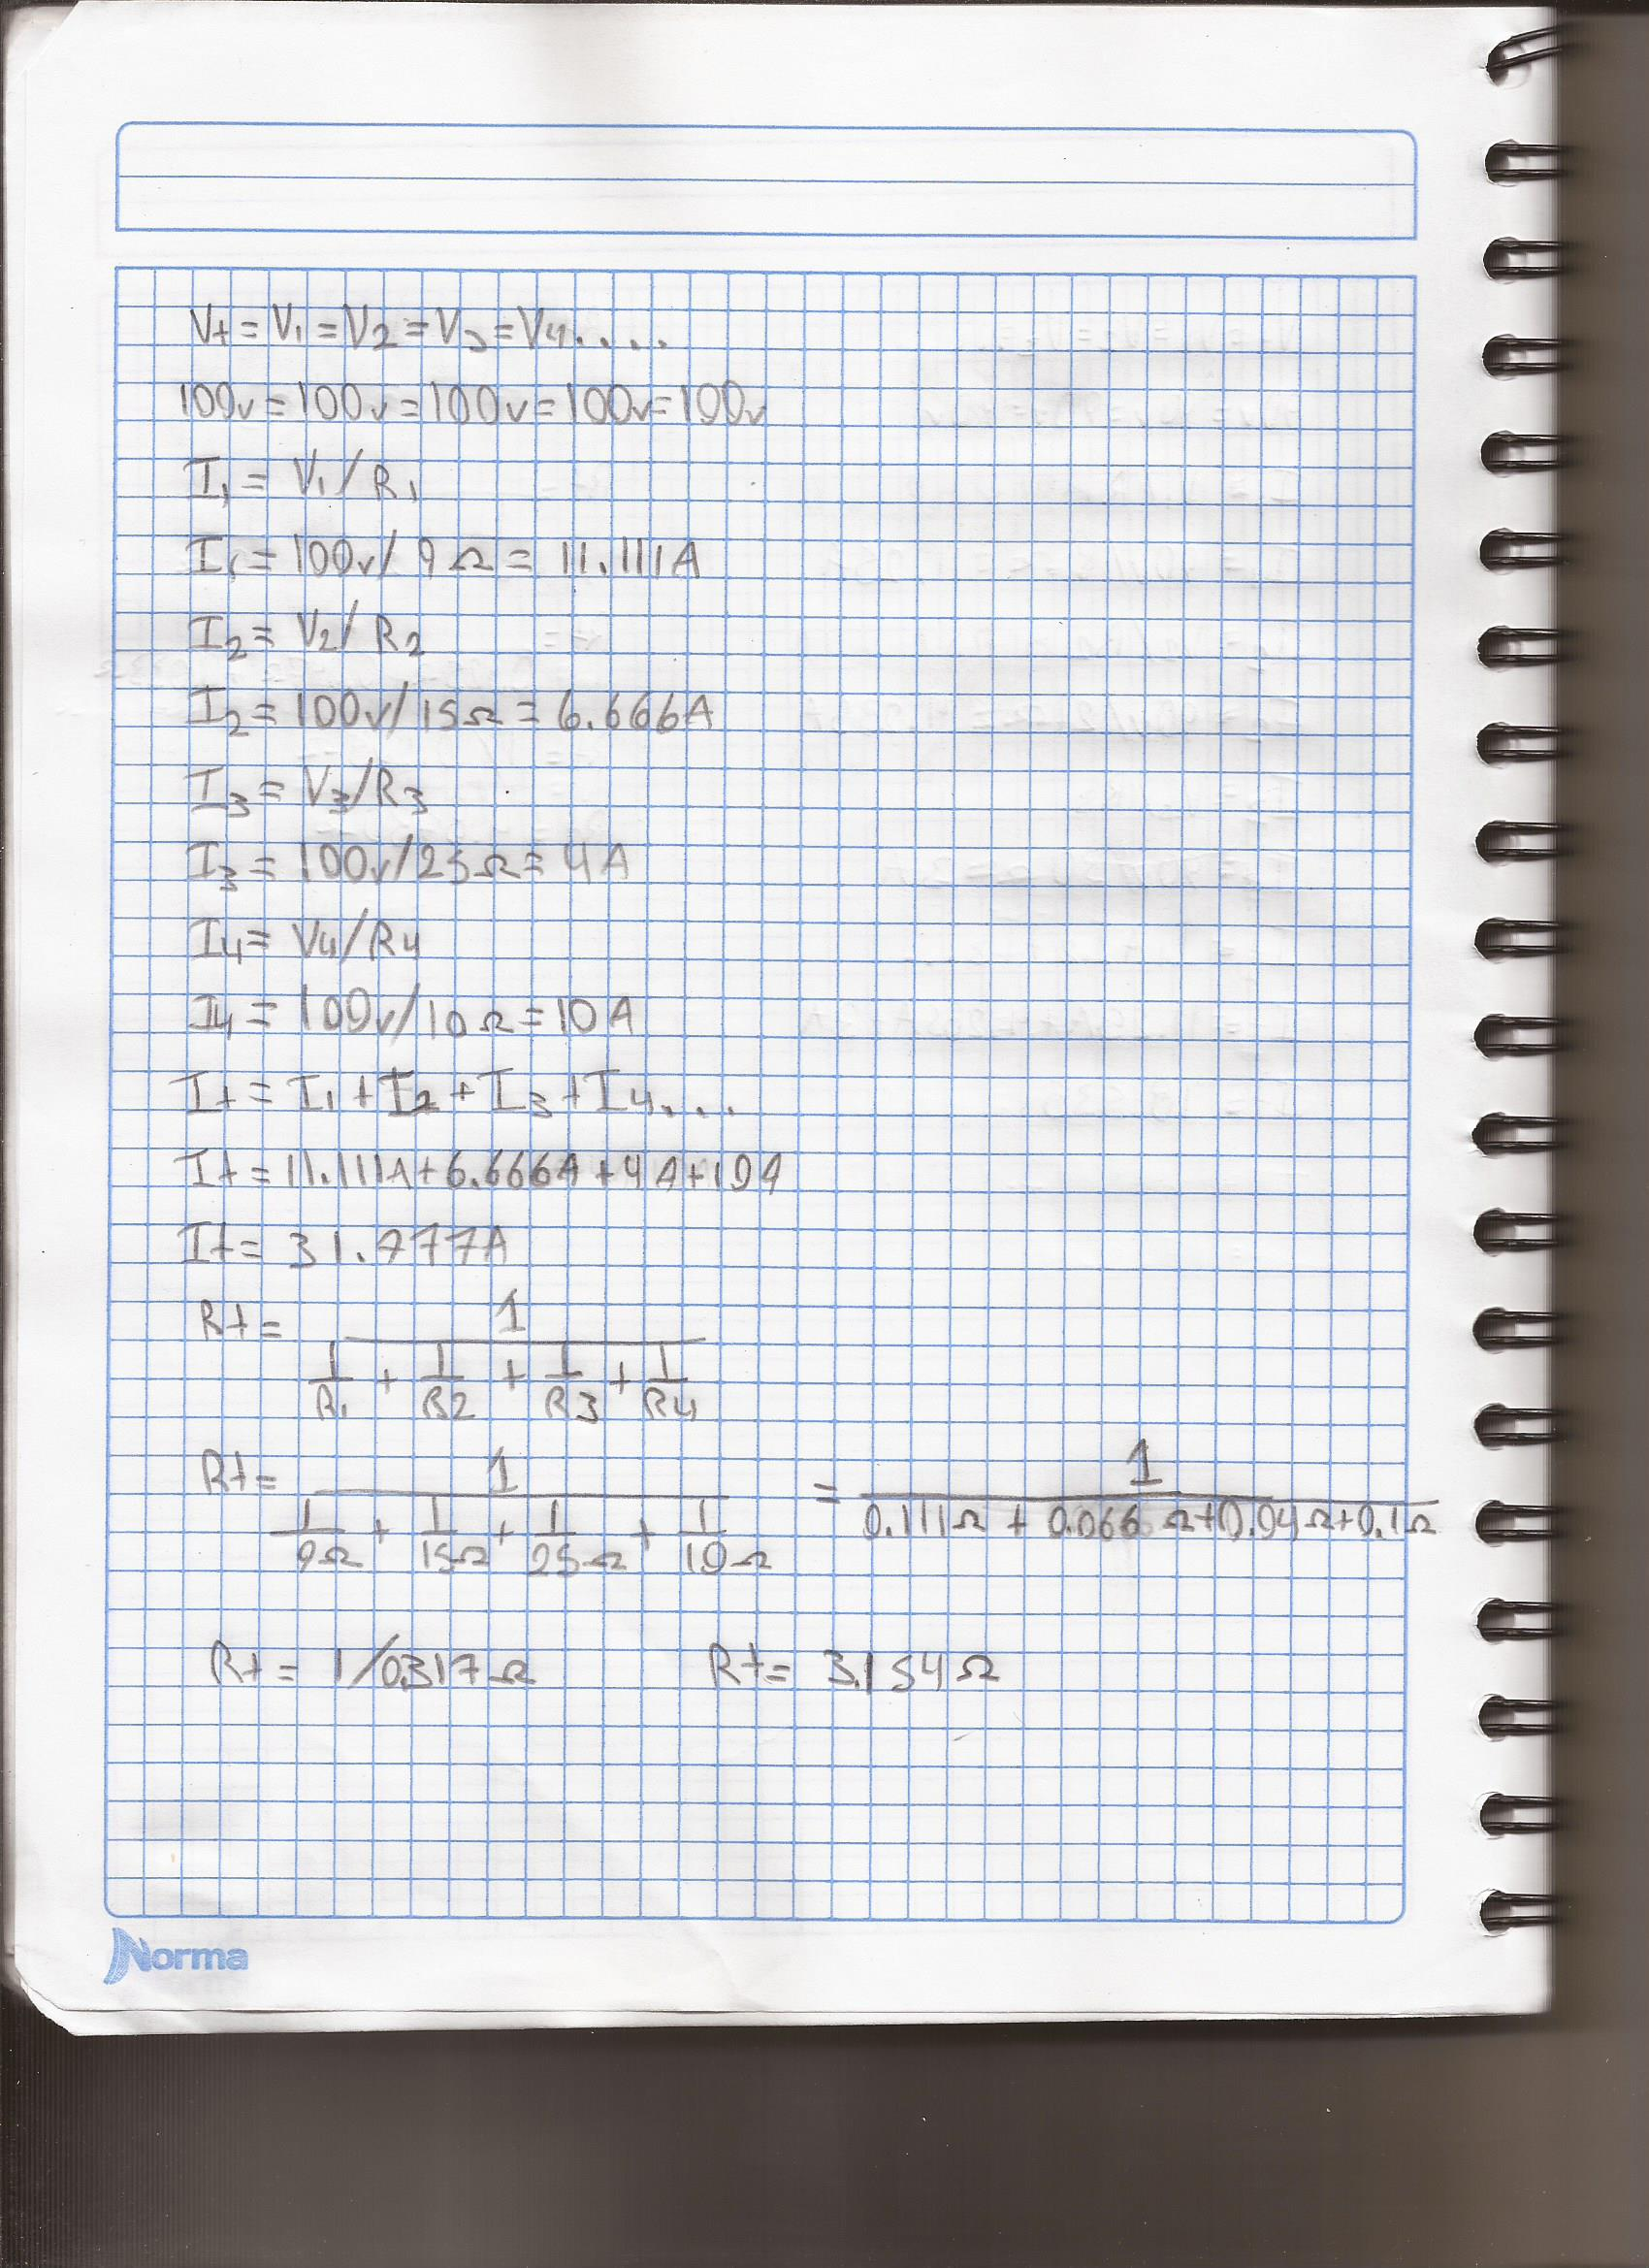 Vt = V1 = V2 = V3 = V4....
100v = 100v = 100v = 100v = 100v
I1 = V1/R1
I1 = 100v/9Ω = 11.111A
I2 = V2/R2
I2 = 100v/15Ω = 6.666A
I3 = V3/R3
I3 = 100v/25Ω = 4A
I4 = V4/R4
I4 = 100v/10Ω = 10A
It = I1 + I2 + I3 + I4....
It = 11.111A + 6.666A + 4A + 10A
It = 31.777A
Rt = 1
1/R1 + 1/R2 + 1/R3 + 1/R4
Rt = 1 = 1
1/9Ω + 1/15Ω + 1/25Ω + 1/10Ω 0.111Ω + 0.066Ω + 0.04Ω + 0.1Ω
Rt = 1/0.317Ω Rt = 3.154Ω
Norma